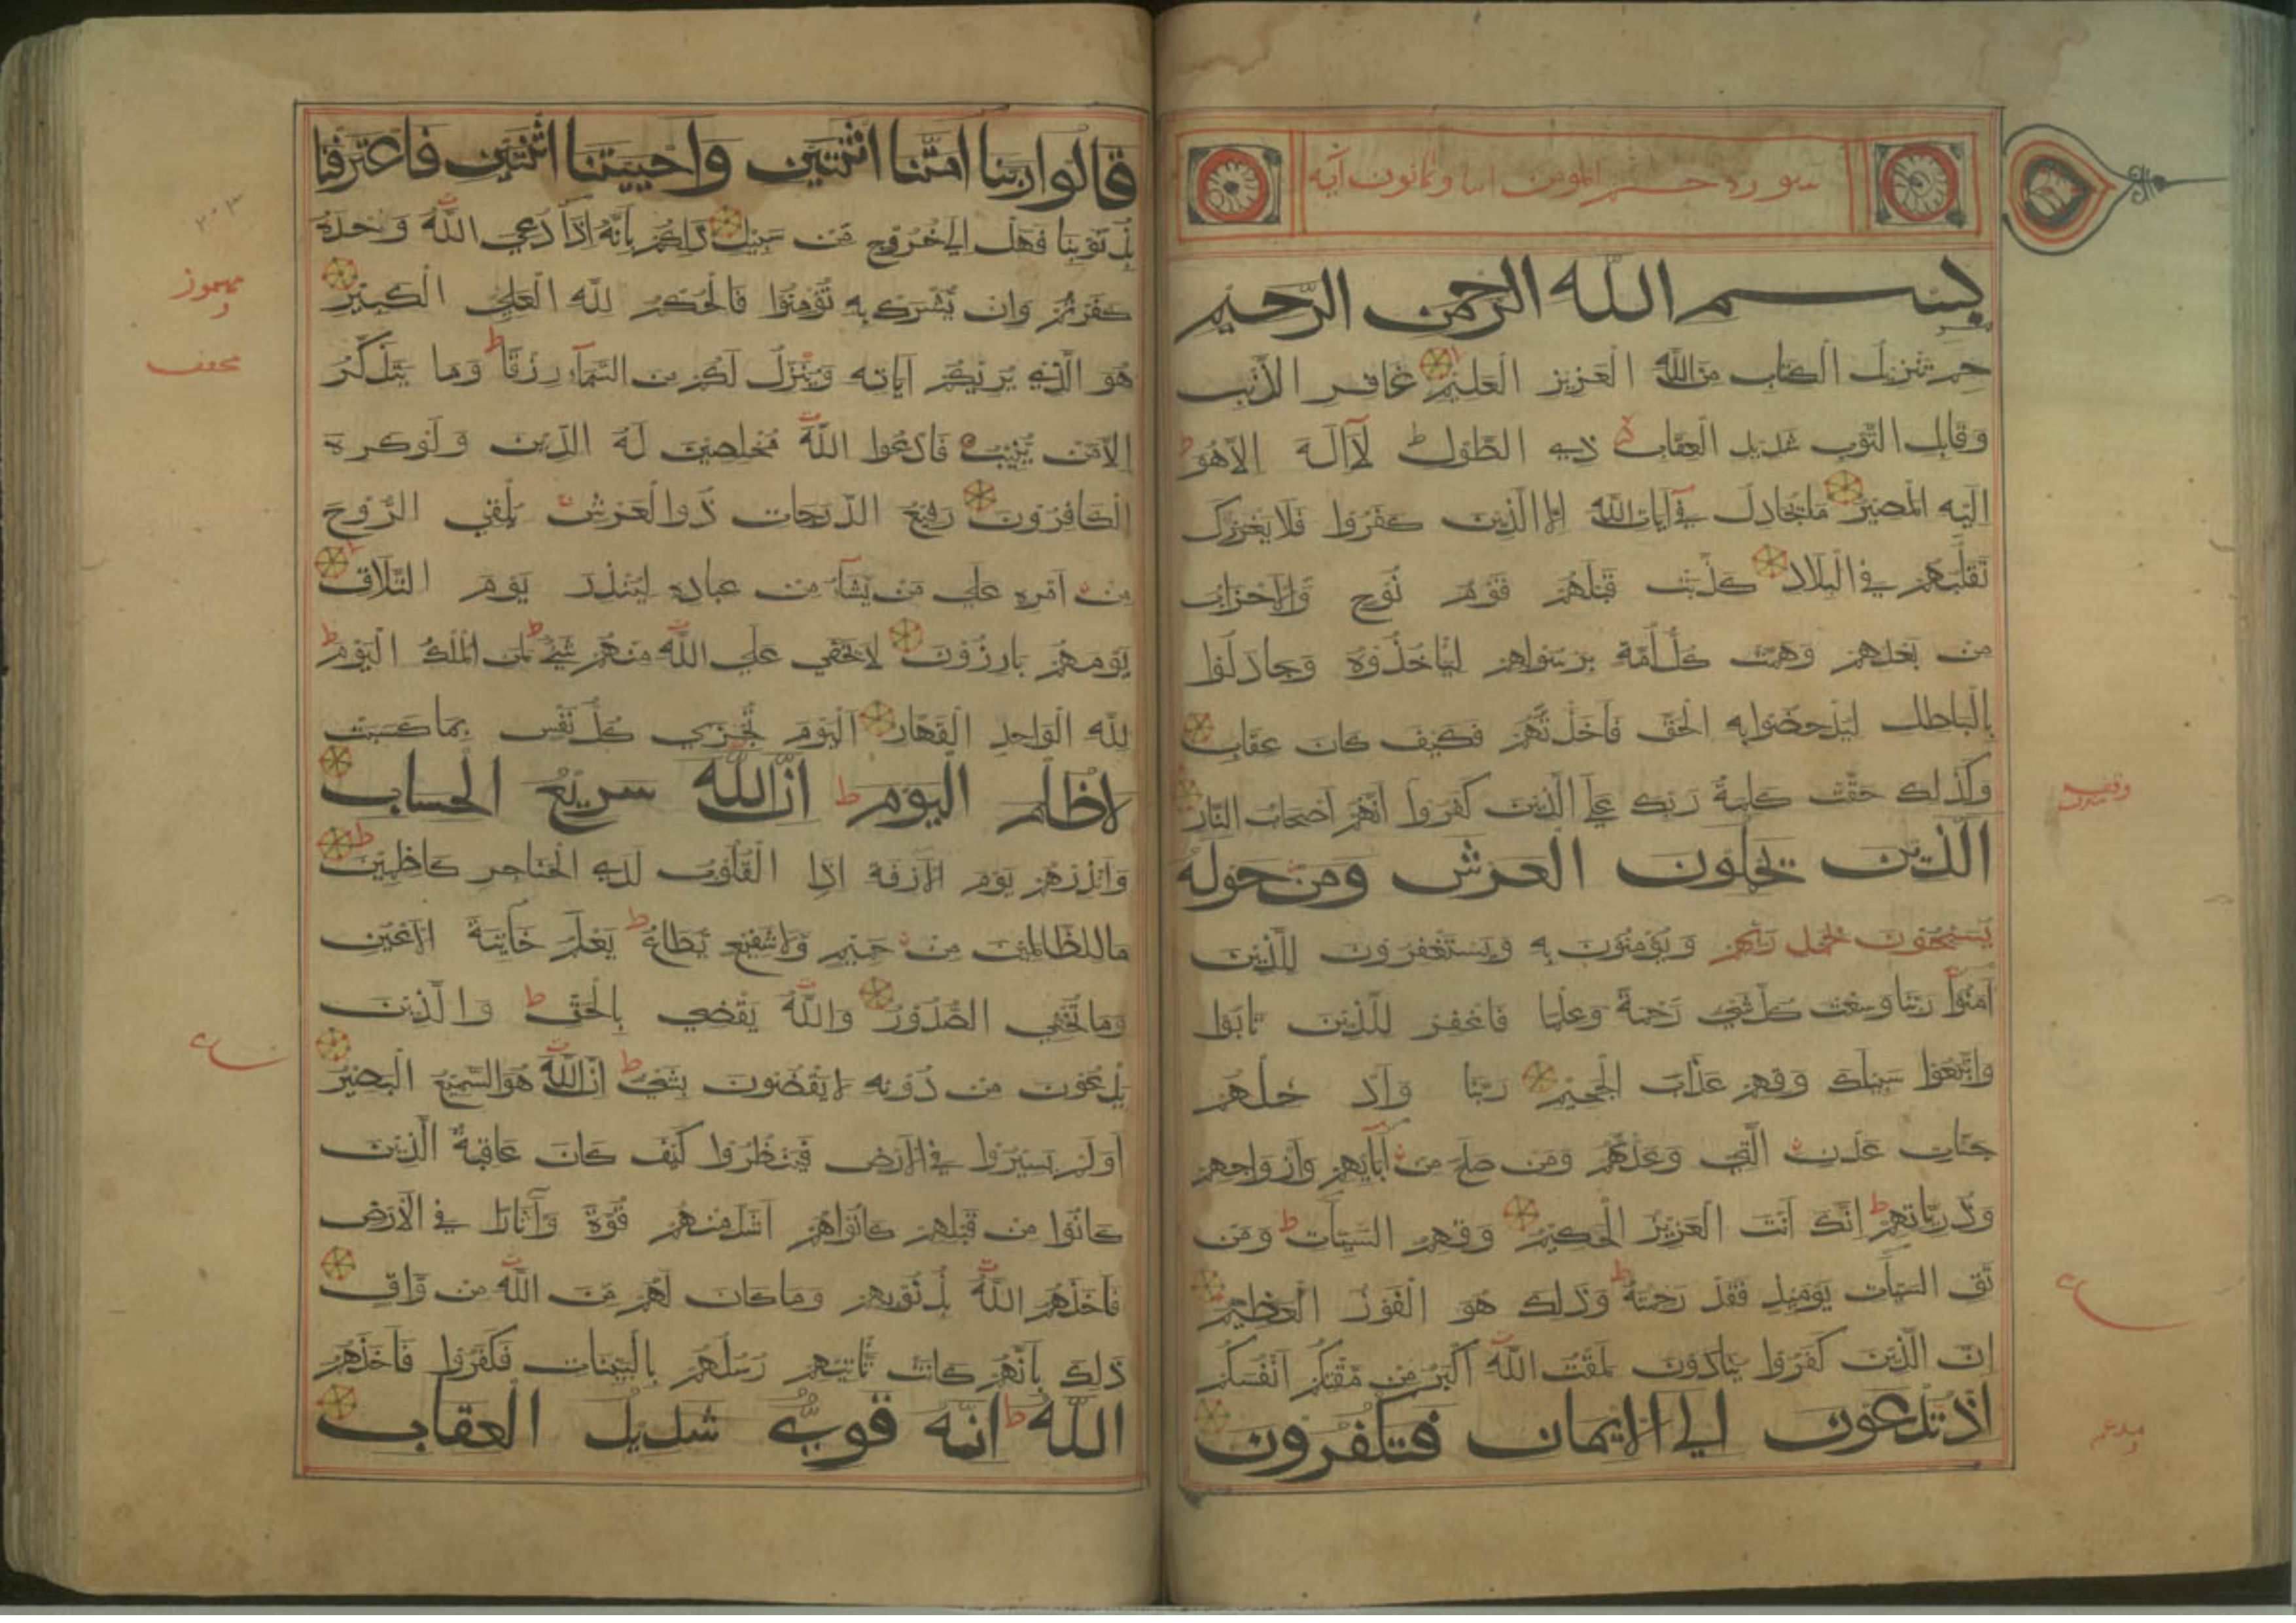 سورة حم المومن اثنا وثمانون آية
بسم الله الرحمن الرحيم
حم تنزيل الكتاب من الله العزيز العليم غافر الذنب
وقابل التوب شديد العقاب ذي الطول لا اله الا هو
اليه المصير ما يجادل في آيات الله الا الذين كفروا فلا يغررك
تقلبهم في البلاد كذبت قبلهم قوم نوح والاحزاب
من بعدهم وهمت كل امة برسولهم لياخذوه وجادلوا
بالباطل ليدحضوا به الحق فاخذتهم فكيف كان عقاب
وكذلك حقت كلمة ربك علي الذين كفروا انهم اصحاب النار
الذين يحملون العرش ومن حوله
يسبحون بحمد ربهم ويؤمنون به ويستغفرون للذين
آمنوا ربنا وسعت كل شيء رحمة وعلما فاغفر للذين تابوا
واتبعوا سبيلك وقهم عذاب الجحيم ربنا وادخلهم
جنات عدن التي وعدتهم ومن صلح من آبائهم وازواجهم
وذرياتهم انك انت العزيز الحكيم وقهم السيئات ومن
تق السيئات يومئذ فقد رحمته وذلك هو الفوز العظيم
ان الذين كفروا ينادون لمقت الله اكبر من مقتكم انفسكم
اذ تدعون الي الايمان فتكفرون
قالوا ربنا امتنا اثنتين واحييتنا اثنتين فاعترفنا
بذنوبنا فهل الي خروج من سبيل ذلكم بانه اذا دعي الله وحده
كفرتم وان يشرك به تؤمنوا فالحكم لله العلي الكبير
هو الذي يريكم آياته وينزل لكم من السماء رزقا وما يتذكر
الا من ينيب فادعوا الله مخلصين له الدين ولو كره
الكافرون رفيع الدرجات ذو العرش يلقي الروح
من امره علي من يشاء من عباده لينذر يوم التلاق
يوم هم بارزون لا يخفي علي الله منهم شيء لمن الملك اليوم
لله الواحد القهار اليوم تجزي كل نفس بما كسبت
لا ظلم اليوم ان الله سريع الحساب
وانذرهم يوم الآزفة اذ القلوب لدي الحناجر كاظمين
ما للظالمين من حميم ولا شفيع يطاع يعلم خائنة الاعين
وما تخفي الصدور والله يقضي بالحق والذين
يدعون من دونه لا يقضون بشيء ان الله هو السميع البصير
اولم يسيروا في الارض فينظروا كيف كان عاقبة الذين
كانوا من قبلهم كانوا هم اشد منهم قوة وآثارا في الارض
فاخذهم الله بذنوبهم وما كان لهم من الله من واق
ذلك بانهم كانت تاتيهم رسلهم بالبينات فكفروا فاخذهم
الله انه قوي شديد العقاب